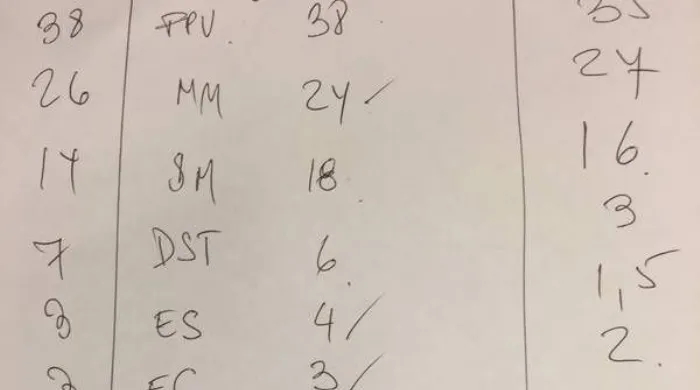 38 PPU. 38. 35
26 MM 24 27
14 SM 18. 16.
7 DST 6. 3
3 ES 4 1,5
3 2.